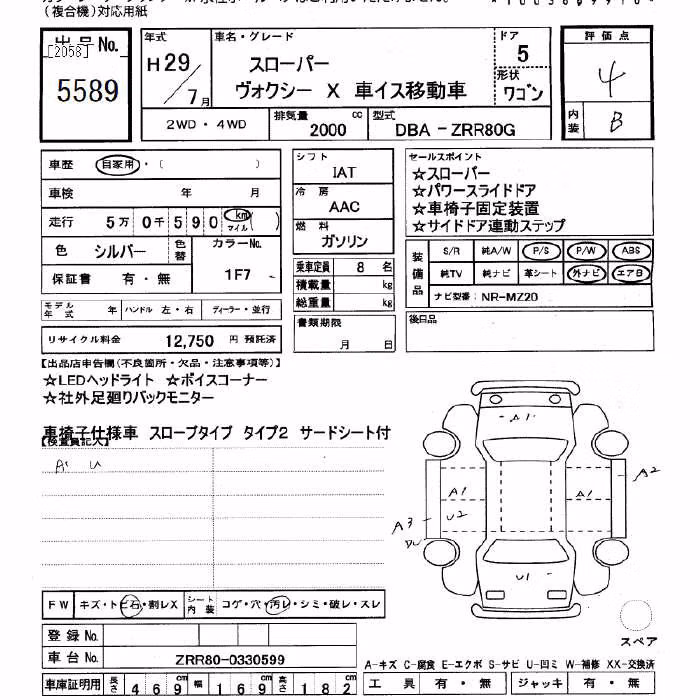 (複合機)対応用紙
出品No.
[2058]
5589
年式
H29/7月
車名・グレード
スローパー
ヴォクシー X 車イス移動車
ドア
5
形状
ワゴン
評価点
4
内装
B
2WD・4WD
排気量
2000 cc
型式
DBA-ZRR80G
車歴 自家用・( )
車検 年 月
走行 5万0千590 km マイル( )
色 シルバー 色替
カラーNo.
1F7
保証書 有・無
モデル年式 年 ハンドル 左・右 ディーラー・並行
リサイクル料金 12,750 円 預託済
シフト
IAT
冷房
AAC
燃料
ガソリン
乗車定員 8 名
積載量 kg
総重量 kg
書類期限
月 日
セールスポイント
☆スローパー
☆パワースライドドア
☆車椅子固定装置
☆サイドドア連動ステップ
装備品
S/R 純A/W P/S P/W ABS
純TV 純ナビ 革シート 外ナビ エアB
ナビ型番: NR-MZ20
後日品
【出品店申告欄(不良箇所・欠品・注意事項等)】
☆LEDヘッドライト ☆ボイスコーナー
☆社外足廻りバックモニター
車椅子仕様車 スロープタイプ タイプ2 サードシート付
【検査員記入】
A U
A1
A2
A1
A1
U2
A3
U1
FW キズ・トビ石・割レX
シート内装 コゲ・穴・汚レ・シミ・破レ・スレ
登録No.
車台No. ZRR80-0330599
車庫証明用 長さ 469cm 幅 169cm 高さ 182
スペア
A-キズ C-腐食 E-エクボ S-サビ U-凹ミ W-補修 XX-交換済
工具 有・無 ジャッキ 有・無